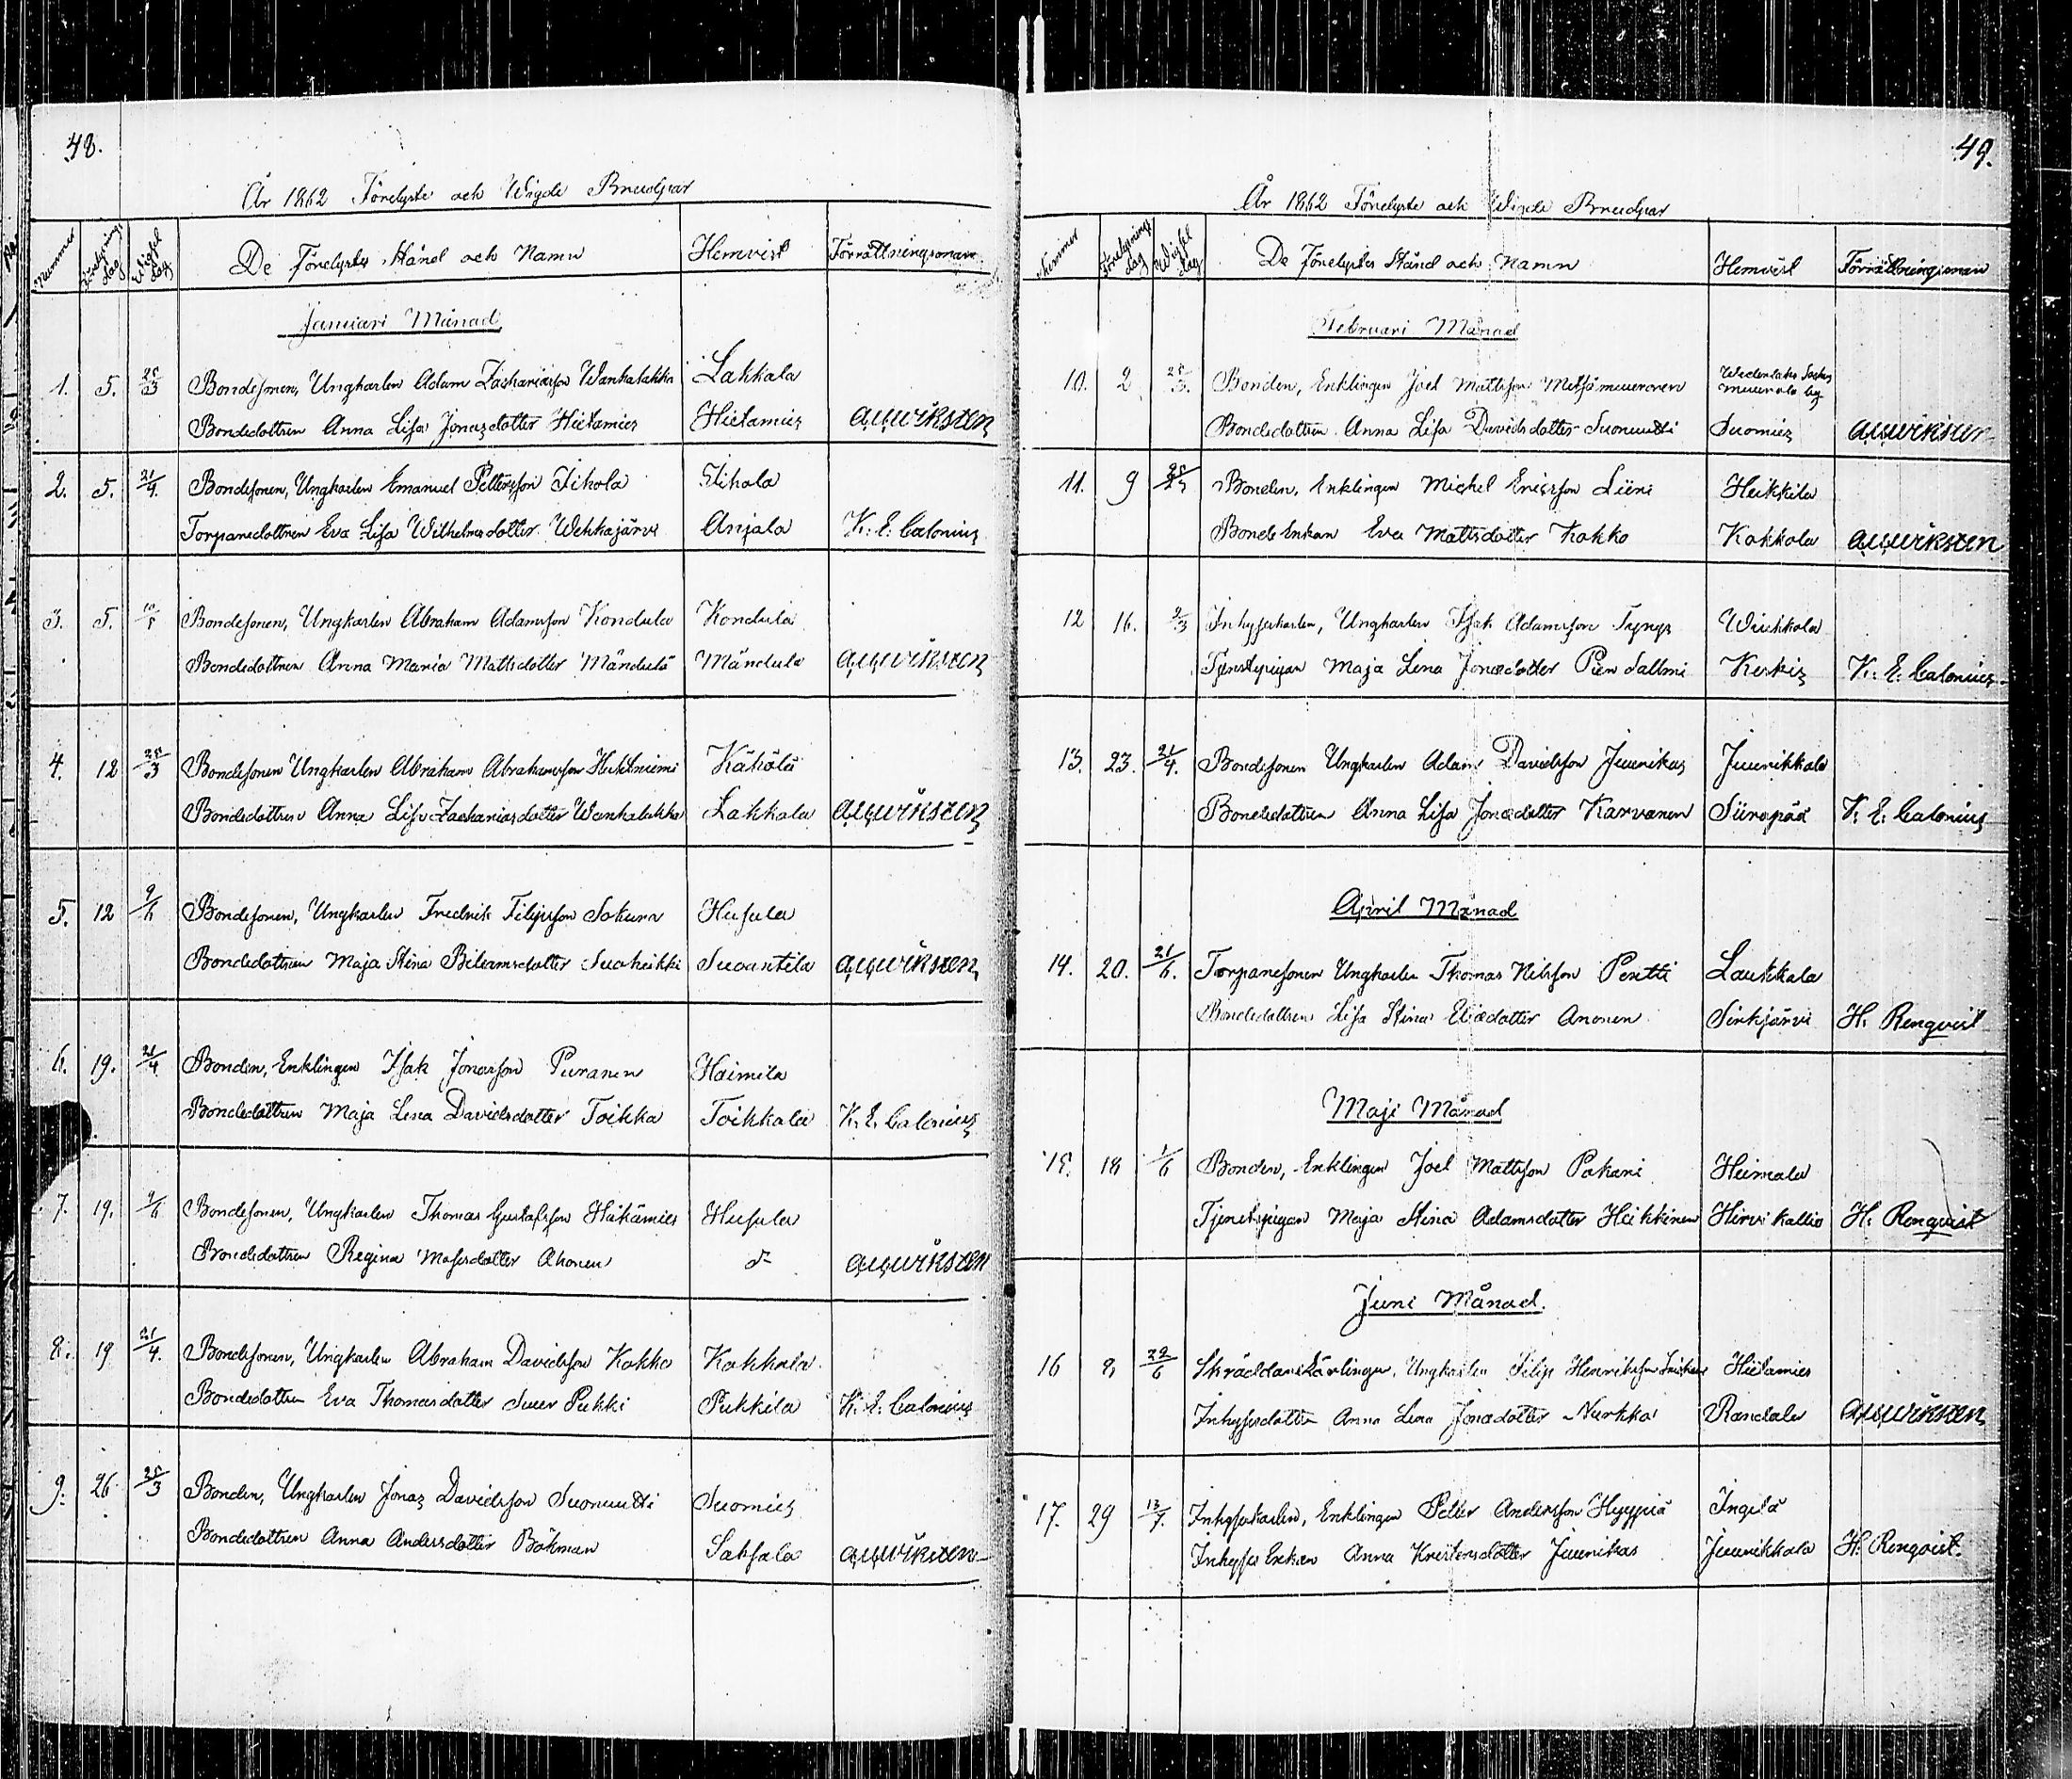 48.
År 1862 Förelyste och Wigde Brudpar
Nummer Förelysnings dag Wigsel dag De Förelystes Stånd och Namn Hemvist Förrättningsman
Januari Månad
1. 5. 25/3 Bondesonen, Ungkarlen Adam Zachariasson Wanhalakka Lakkala
Bondedottren Anna Lisa Jonasdotter Hietamies Hietamies
2. 5. 21/4 Bondesonen, Ungkarlen Emanuel Pettersson Tikola Tikola
Torparedottren Eva Lisa Wilhelmsdotter Wehkajärvi Anjala K. E. Calonius
3. 5. Bondesonen, Ungkarlen Abraham Adamsson Kondula Kondula
Bondedottren Anna Maria Mattsdotter Mändulä Mändulä
4. 12 25/3 Bondesonen Ungkarlen Abraham Abrahamsson Kähölä
Bondedottren Anna Lisa Zachariasdotter Wanhalakka Lakkala
5. 12 9/6 Bondesonen, Ungkarlen Fredrik Filipsson Sokura Husula
Bondedottren Maja Stina Suoheikki Suoantila
6. 19. 21/4 Bonden, Enklingen Isak Jonasson Puranen Haimila
Bondedottren Maja Lena Davidsdotter Toikka Toikkala K. E. Calonius
7. 19. 9/6 Bondesonen, Ungkarlen Thomas Gustafsson Häkämies Husula
Bondedottren Regina Mosesdotter Ahonen
8. 19 21/4. Bondesonen, Ungkarlen Abraham Davidsson Kokko Kokkola
Bondedottren Eva Thomasdotter Suur Pukki Pukkila K. E. Calonius
9. 26 25/3 Bonden, Ungkarlen Jonas Davidsson Suomies
Bondedottren Anna Andersdotter Bökman Saksala
49.
År 1862 Förelyste och Wigde Brudpar
Nummer Förelysnings dag Wigsel dag De Förelystes Stånd och Namn Hemvist Förrättningsman
Februari Månad
10. 2 25/3. Bonden, Enklingen Joel Mattsson
Bondedottren Anna Lisa Davidsdotter Suomies
11. 9 Bonden, Enklingen Michel Ericsson Liini Heikkila
Bonde Enkan Eva Mattsdotter Kokko Kokkola
12 16. 9/3 Inhyseskarlen, Ungkarlen Isak Adamsson Tynys Wiukkala
Tjenstepigan Maja Lena Jonædotter Pien Sallmi Kerkis K. E. Calonius
13. 23. 21/4. Bondesonen Ungkarlen Adam Davidsson Juunikas Juunikkala
Bondedottren Anna Lisa Jonædotter Karvanen Siiropää K. E. Calonius
April Månad
14. 20. 21/6. Torparesonen Ungkarlen Thomas Nilsson Pentti Laukkala
Bondedottren Lisa Stina Eliædotter Anonen Sirkjärvi H. Renqvist
Maji Månad
15. 18 1/6 Bonden, Enklingen Joel Mattsson Pakani Heimala
Tjenstepigan Maja Stina Adamsdotter Heikkinen Hirvikallio H. Renqvist
Juni Månad.
16 8 22/6 Ungkarlen Filip Henriksson Hietamies
Inhysesdottren Anna Lena Jonædotter Nurkka Randala
17. 29 13/7. Inhyseskarlen, Enklingen Petter Andersson Hyyppiä Ingilä
Inhyses Enkan Anna Kristersdotter Juunikas Juunikkala H. Renqvist.